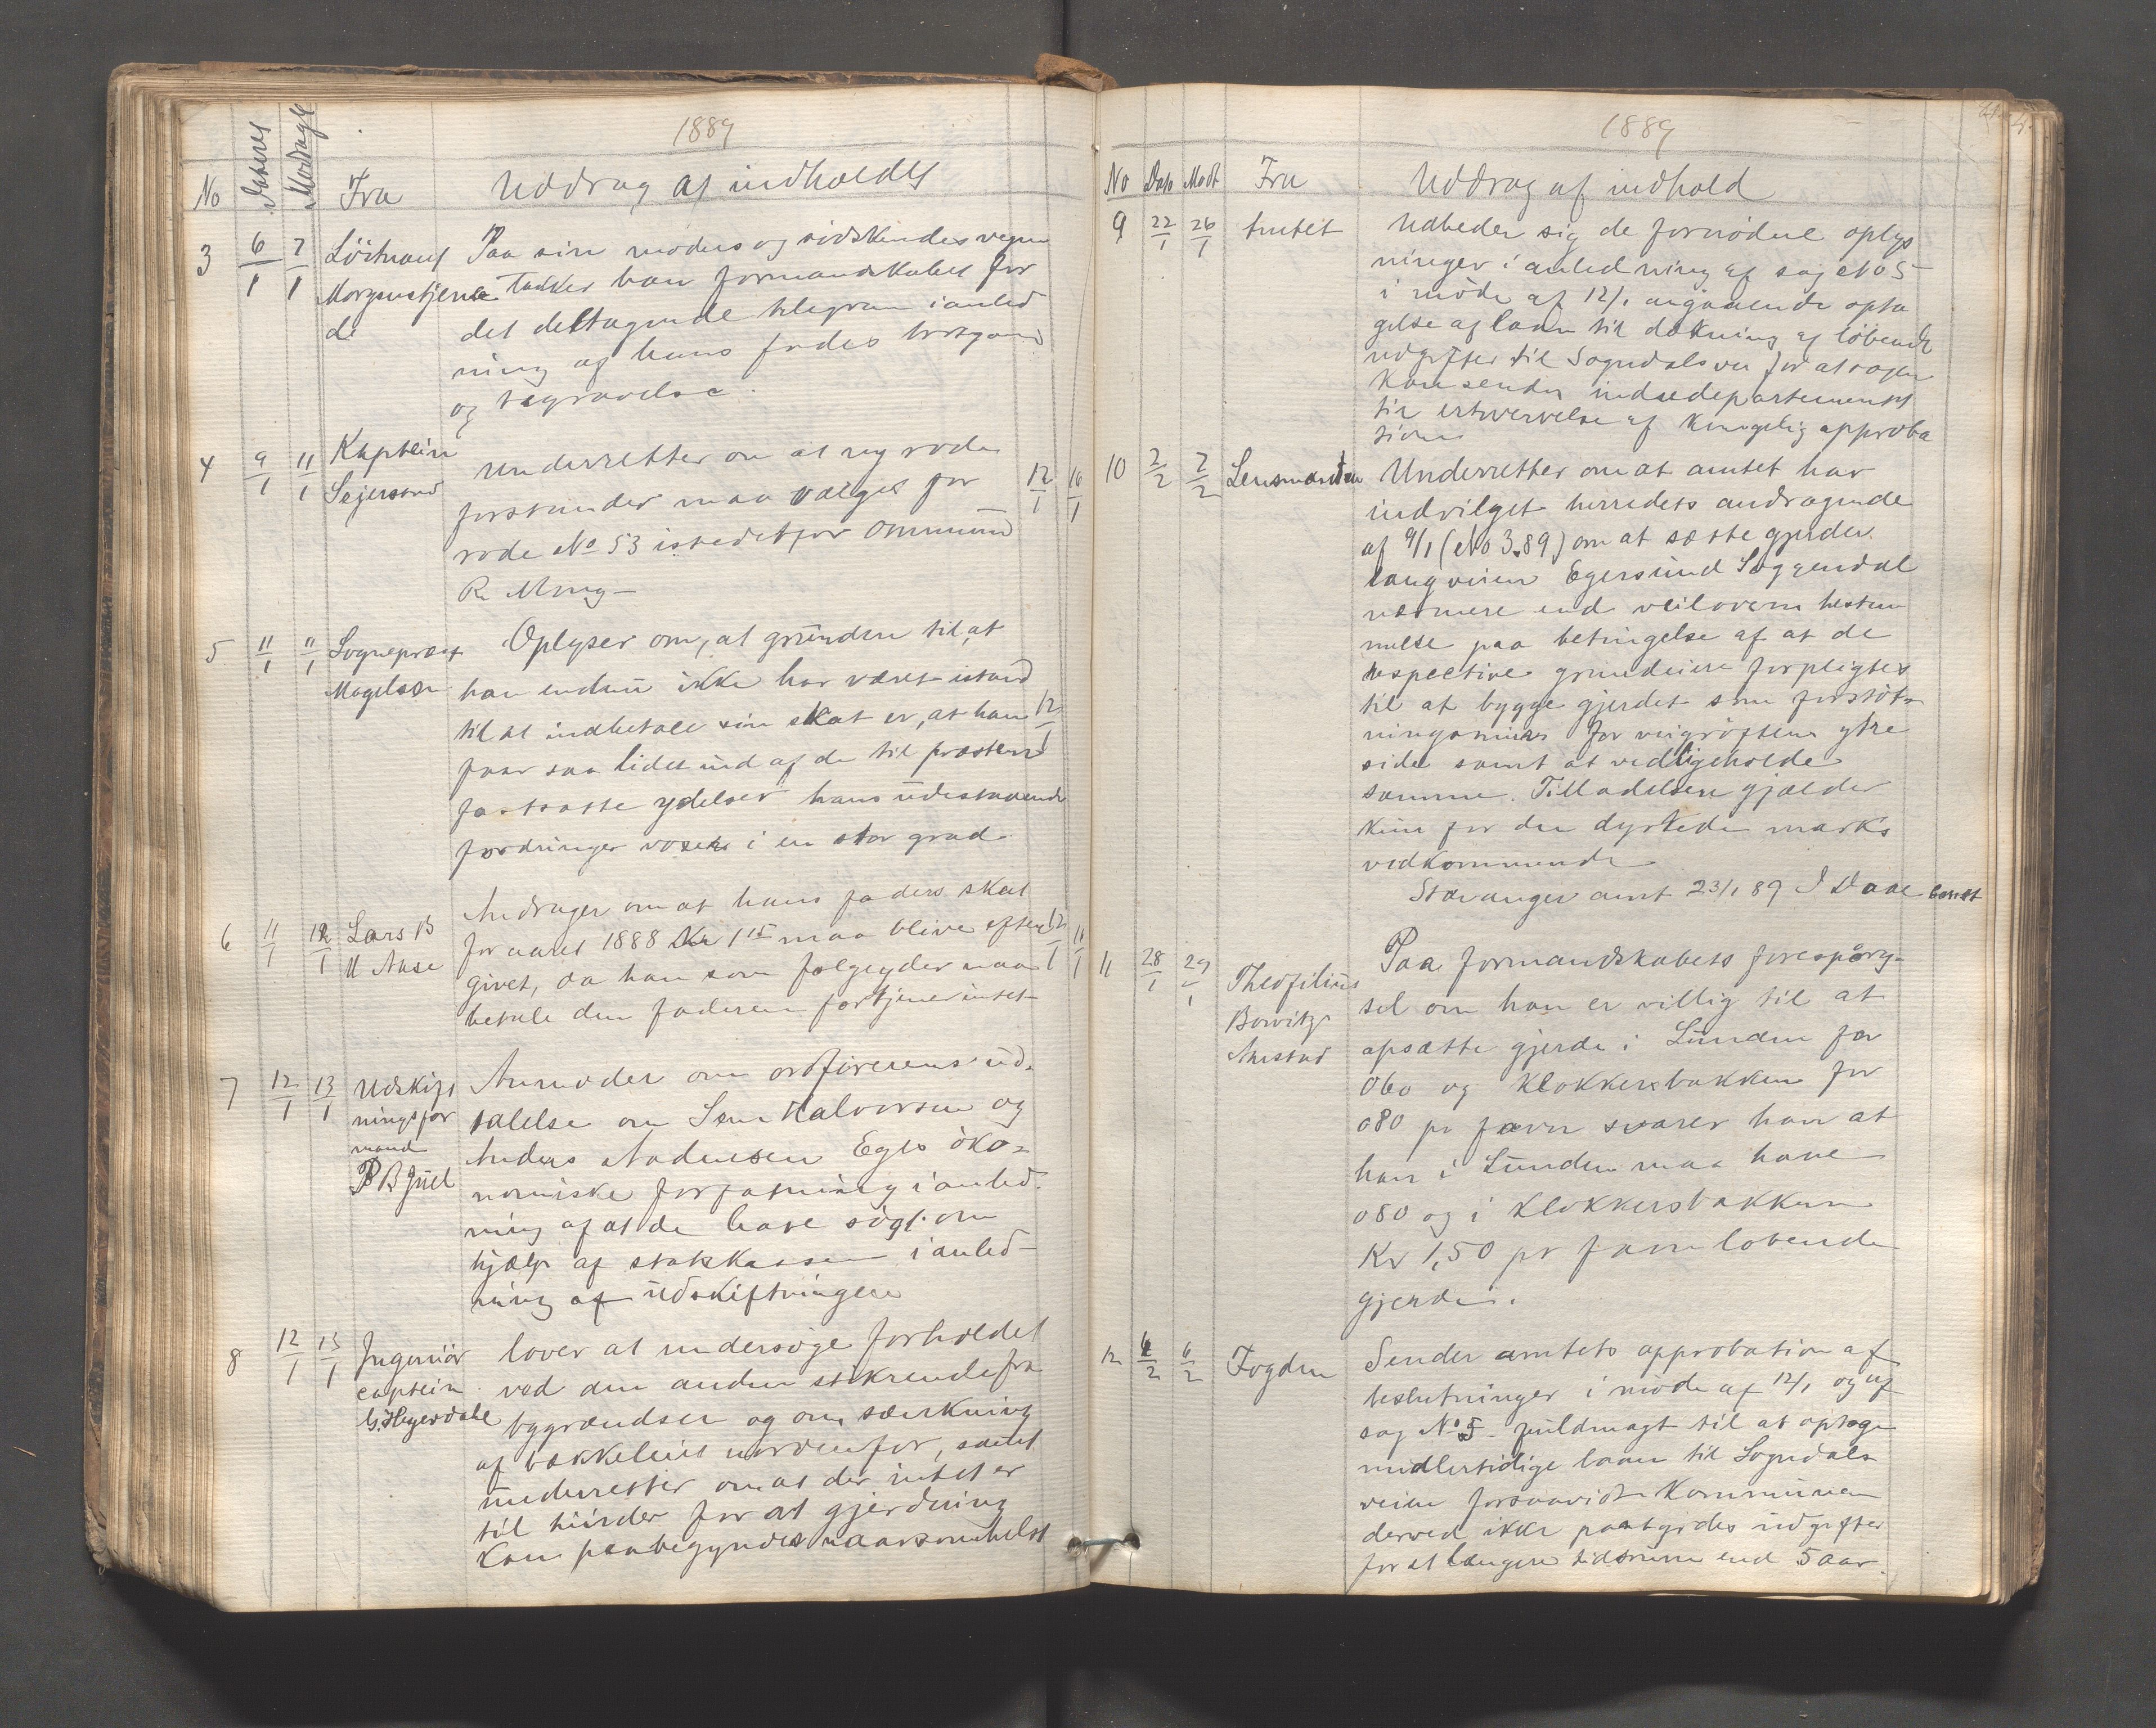 1889
No Dateret Modtaget Fra Uddrag af indholdet
3 6/1 7/1 Löitnant Paa sin moders og södskendes vegne
Morgenstjerne takker han formandskabet for
de det deltagende telegram i anled
ning af hans faders bortgang
og begravelse.
4 9/1 11/1 Kaptein Underretter om at ny rode 12/1 16/1
Sejersted forstander maa vælges for
rode No 53 istedetfor Ommund
R. Mong
5 11/1 11/1 Sogneprest Oplyser om, at grunden til, at
Magelsen han endnu ikke har været istand
til at indbetale sin skat er, at han 12/1
faar saa lidet ind af de til præsten
fastsatte ydelser hans udestaaende
fordringer voxer i en stor grad
Andrager om at hans faders skat
6 11/1 12/1 Lars B for aaret 1888 Kr 1 15 maa blive efter 12/1 16/1
M Aase givet, da han som følgeyder maa
betale den faderen fortjener intet
7 12/1 13/1 Udskift Anmoder om ordførerens ud-
ningsfor talelse om Halvorsen og
mand Anders Andersen Eges öko-
P B Juel nomiske forfatning i anled
ning af at de have sögt om
hjælp af statskassen i anled
ning af udskiftningen
8 12/1 13/1 Ingeniör lover at undersöge forholdet
captein ved den anden stikrende fra
G. Hegerdahl bygrændsen og om sænkning
af bækkeleiet nordenfor, samt
underretter om at der intet er
til hinder for at gjerdning
kan paabegyndes naarsomhelst
1889
No Dato Modt Fra Uddrag af indhold
9 22/1 26/1 Amtet Udbeder sig de fornödne oplys
ninger i anledning af sag No 5
i möde af 12/1 angaaende opta
gelse af laan til dækning af löbende
udgifter til Sogndalsvei for at sagen
kan sendes indredepartementet
til erhvervelse af kongelig approba
tion
10 2/2 2/2 Lensmanden Underretter om at amtet har
indvilget herredets andragende
af 9/1 (No 3.89) om at sætte gjerder
langs veien Egersund Soggendal
nærmere end veilovens bestem
melse paa betingelse af at de
respective grundeiere forpligtes
til at bygge gjerdet som forstöt
ningsmur for veigröftens ytre
side samt at vedligeholde
samme. Tilladelsen gjælder
kun for den dyrkede marks
vedkommende
Stavanger amt 23/1 89 I Daae
11 28/1 29/1 Theofilius Paa formandskabets forespörg-
Bowitz sel om han er villig til at
Aarstad opsætte gjerde i Lunden for
060 og Klokkersbakken for
080 pr favn svarer han at
han i Lunden maa have
080 og i Klokkersbakken
Kr 1,50 pr favn løbende
gjerde.
12 6/2 6/2 Fogden Sender amtets approbation af
beslutninger i möde af 12/1 og af
sag No 5 fuldmagt til at optage
midlertidige laan til Sogndals
veien forsaavidt Kommunen
derved ikke paatydes udgifter
for et længere tidsrum end 5 aar.